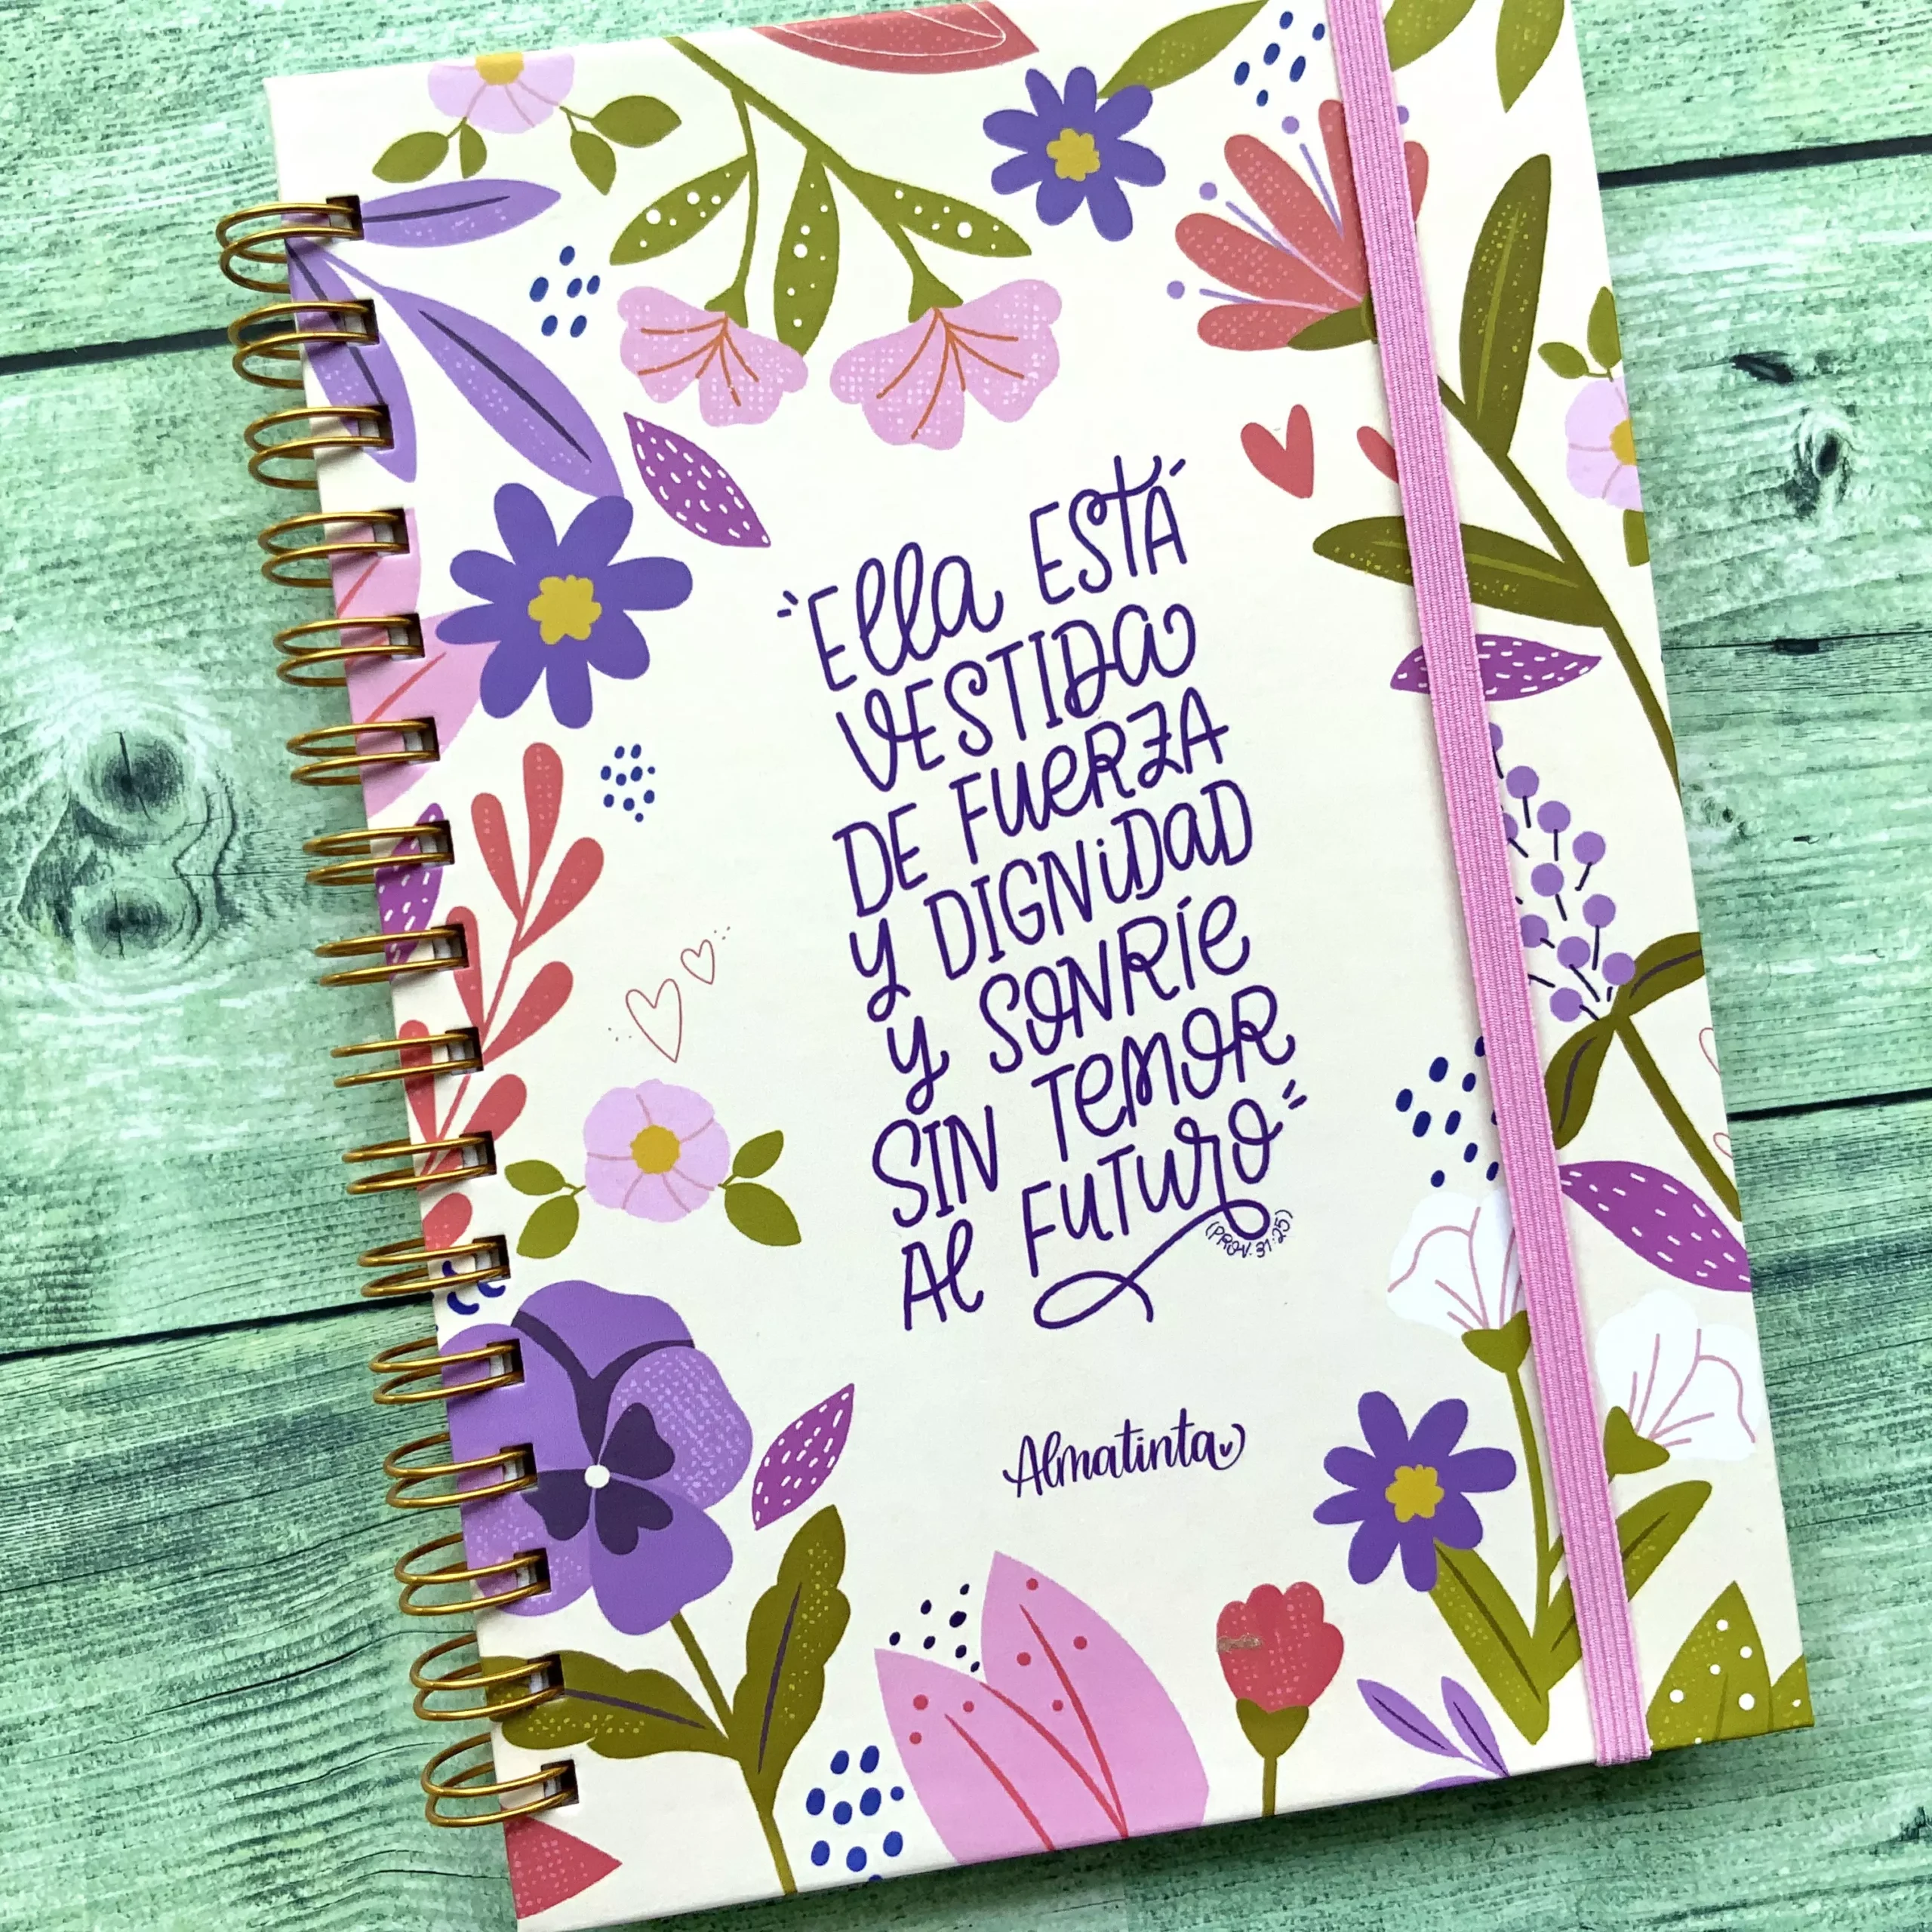 "Ella ESTÁ
VESTIDA
DE FUERZA
y DIGNIDAD
y SONRÍE
SIN TEMOR
Al FUTURO"
(PROV. 31:25)
Almatinta